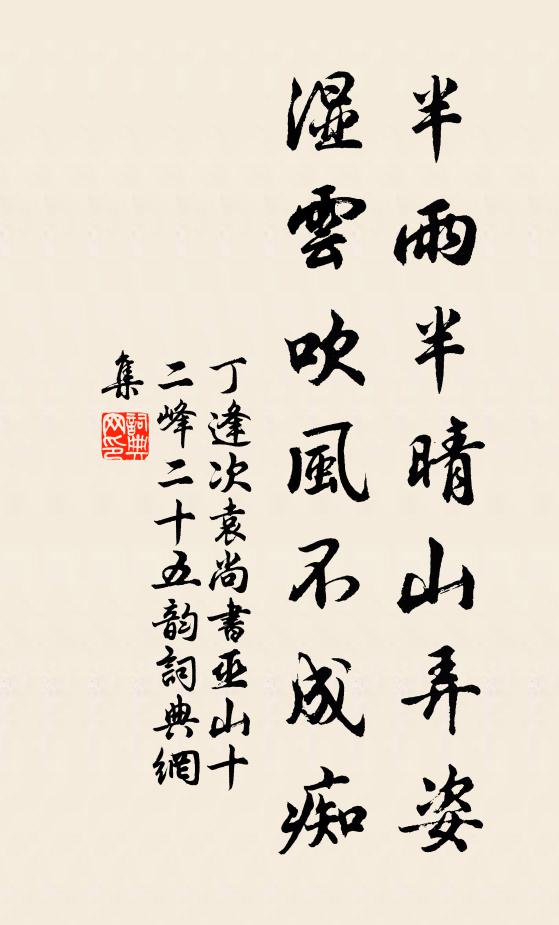 半雨半晴山弄姿
濕雲吹風不成痴
丁逢次袁尚書巫山十
二峰二十五韵詞典網
集
詞典
网印